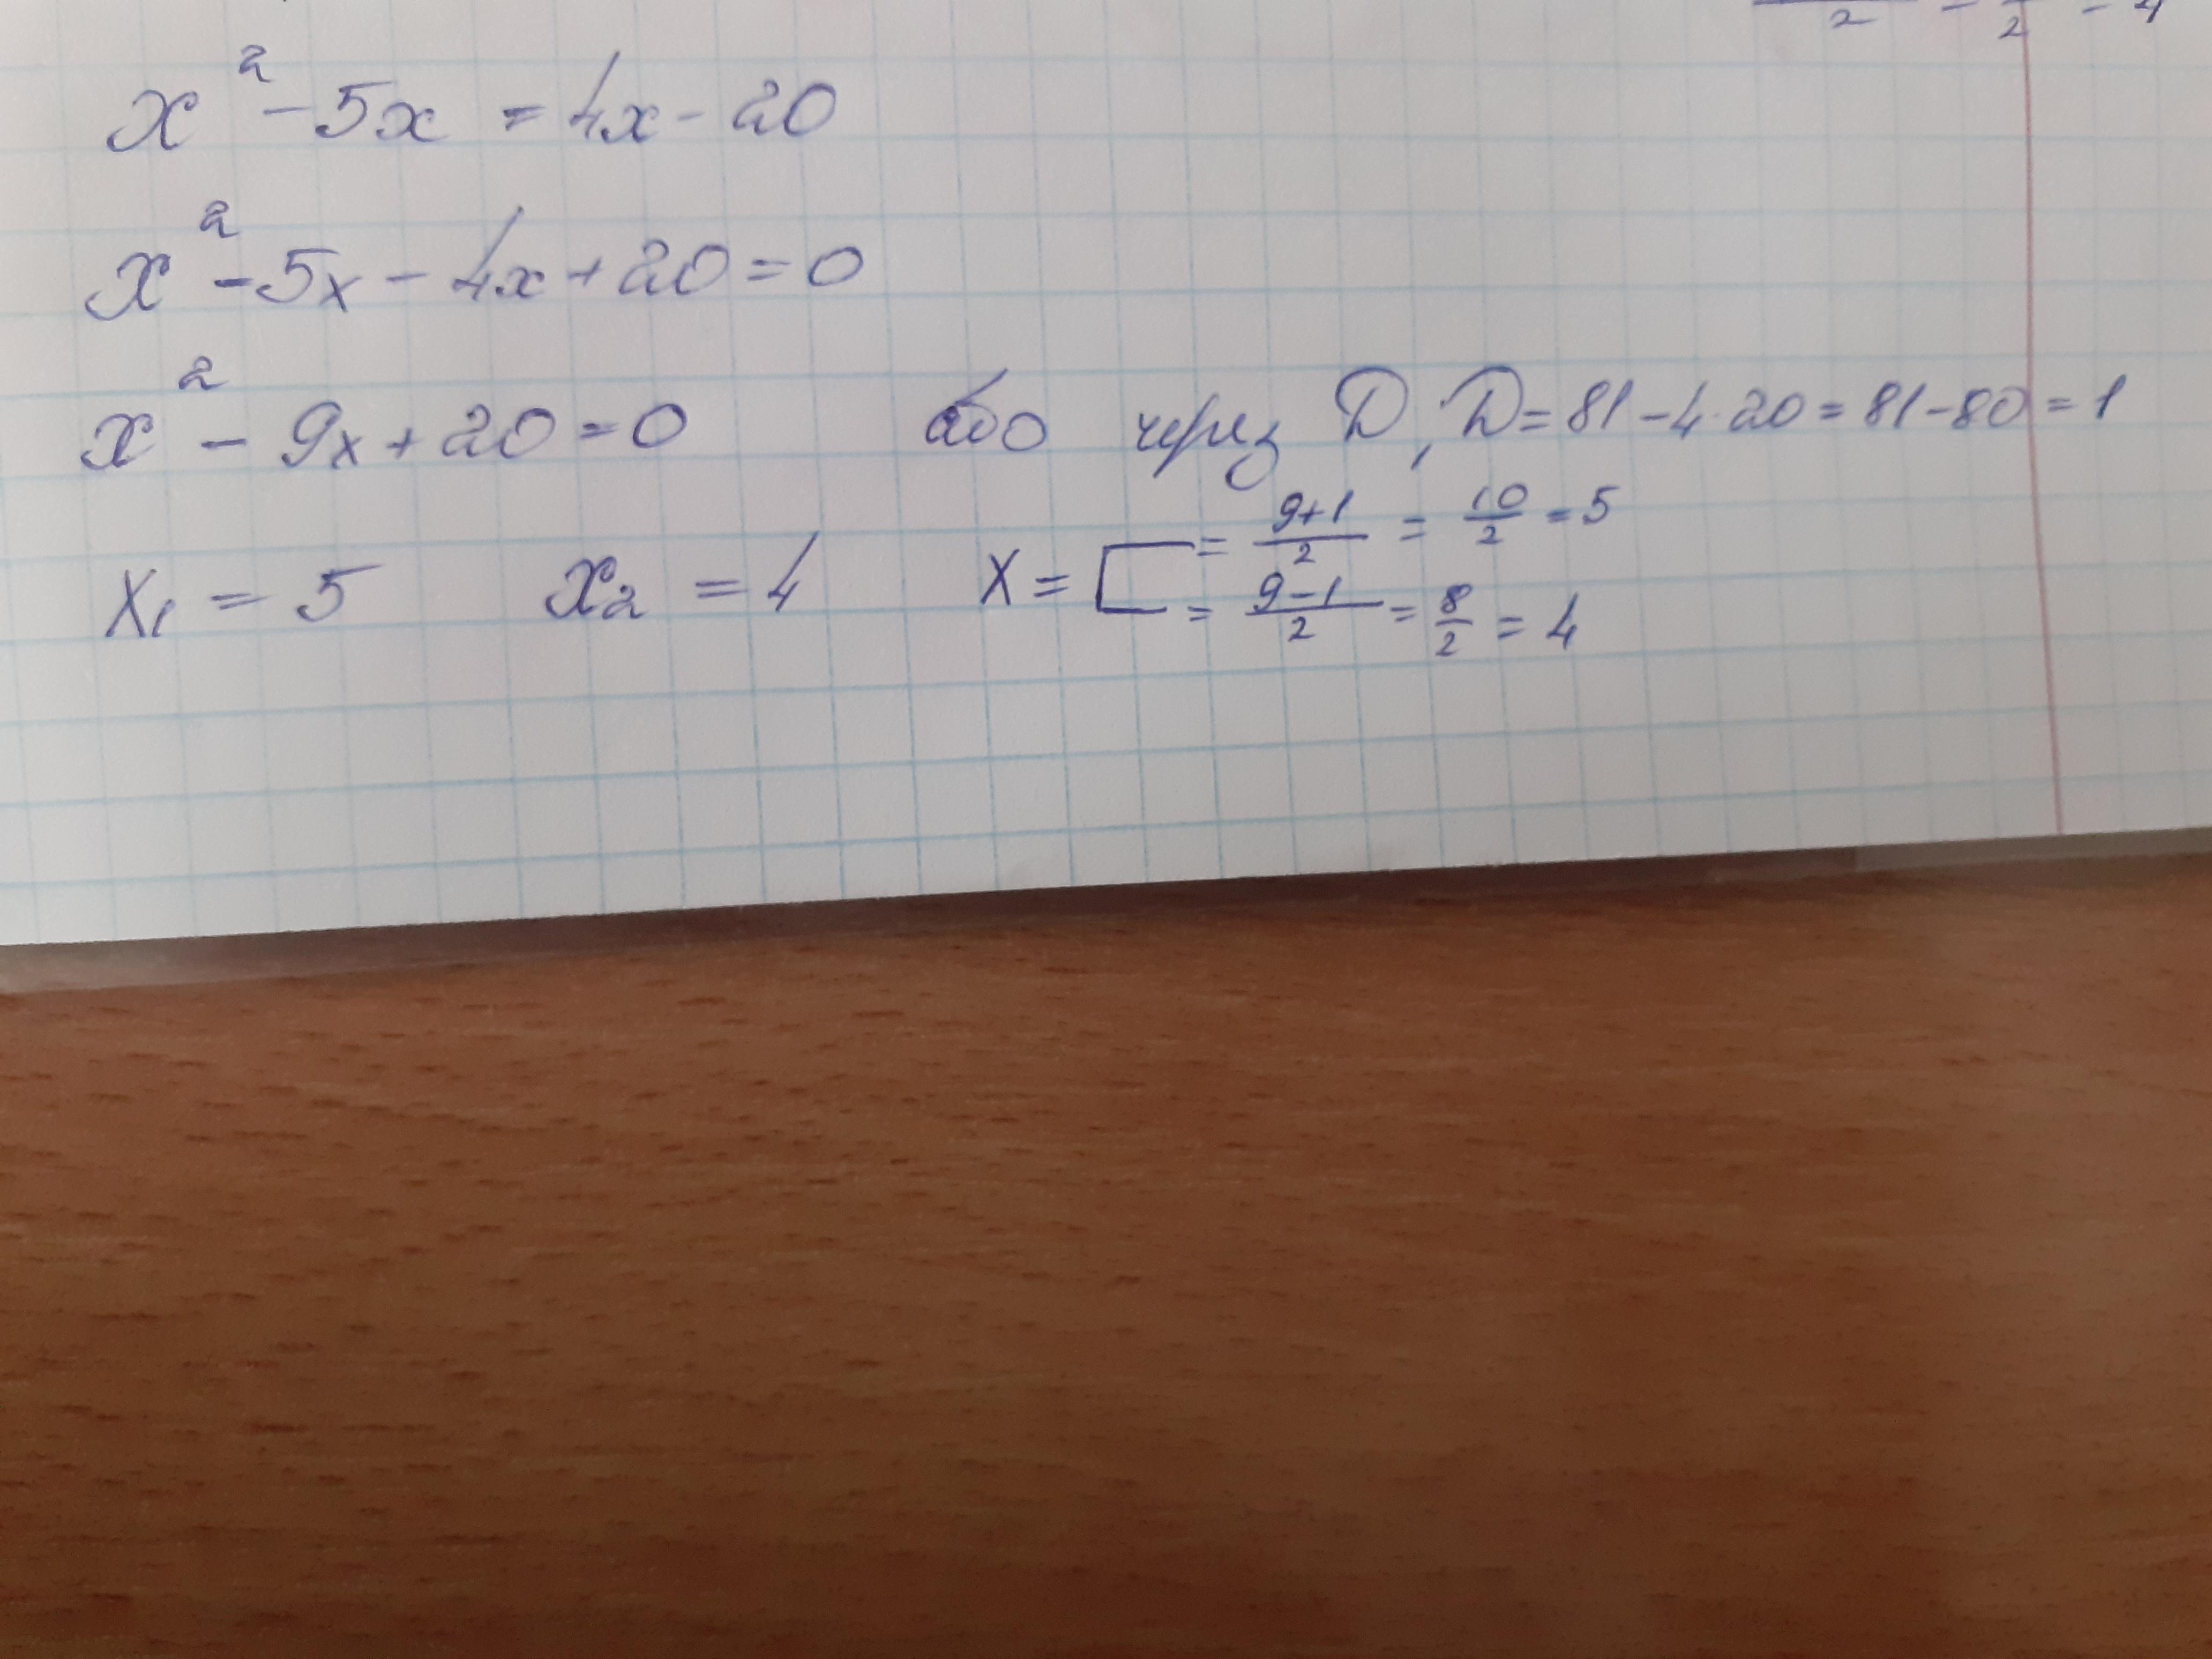 2 = 2 = 4
x² - 5x = 4x - 20
x² - 5x - 4x + 20 = 0
x² - 9x + 20 = 0 або через D, D = 81 - 4·20 = 81 - 80 = 1
x₁ = 5 x₂ = 4 x = [ = (9+1)/2 = 10/2 = 5
= (9-1)/2 = 8/2 = 4